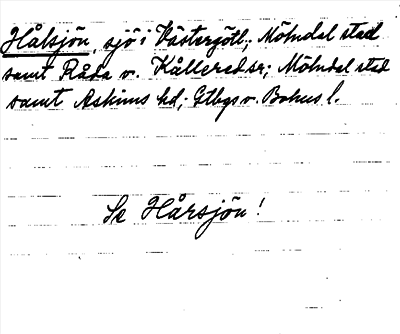 Hålsjön, sjö i Västergötl.; Mölndal stad
samt Råda o. Kållereds sr; Mölndal stad
samt Askims hd; Gtbgs o. Bohus l.
Se Hårsjön!